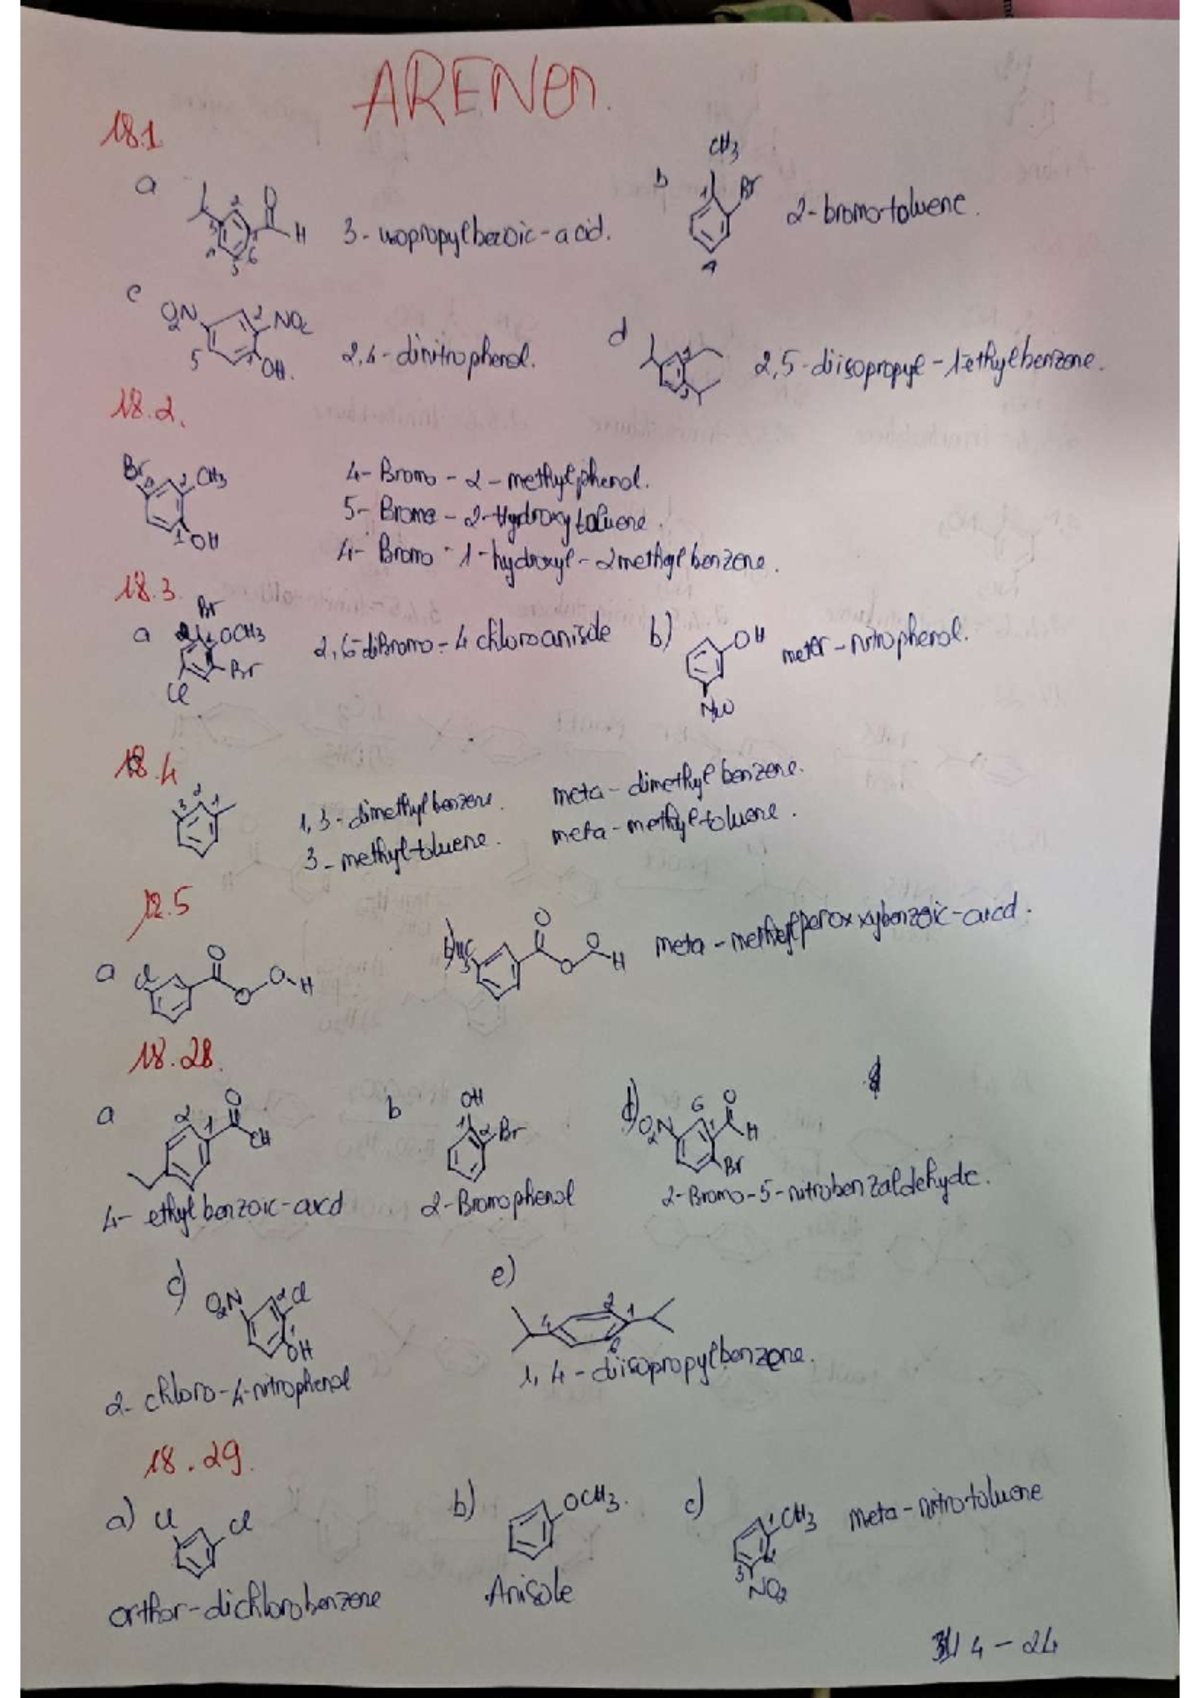 ARENEN.
18.1
a 3-isopropylbezoic-acid.
H
3 2 1 4 5 6
b CH3 Br 2-bromo-toluene.
1 4
c O2N NO2 OH. 2,4-dinitrophenol.
2 5
d 2,5-diisopropyl-1ethylbenzene.
18.2.
Br CH3 OH
2 1
4-Bromo-2-methylphenol.
5-Bromo-2-Hydroxytoluene.
4-Bromo-1-hydroxyl-2methylbenzene.
18.3.
a Br OCH3 Br Cl 2,6-diBromo-4chloroanisole
b) OH meta-nitrophenol.
18.4
3 2 1
1,3-dimethylbenzene. meta-dimethylbenzene.
3-methyl-toluene. meta-methyltoluene.
12.5
a Cl O O O H
b) O O O H meta-methylperoxxybenzoic-acid.
3
18.28.
a 2 1 O OH
4-ethylbenzoic-acid
b OH 1 2 Br
2-Bromophenol
d) O2N 6 1 O H Br
2-Bromo-5-nitrobenzaldehyde.
c) O2N 2 Cl 1 OH
2-chloro-4-nitrophenol
e)
4 2 1 6
1,4-diisopropylbenzene.
18.29.
a) Cl Cl
orthor-dichlorobenzene
b) OCH3.
Anisole
c) 1 CH3 2 3 NO2 meta-nitro-toluene
4-24